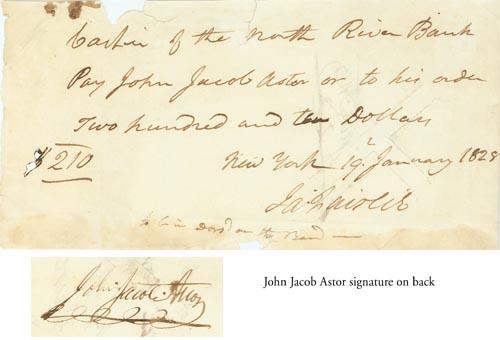 Cashier of the North River Bank
Pay John Jacob Astor or to his order
Two hundred and ten Dollars
$210
New York 19 January 1828
on the Band
John Jacob Astor
John Jacob Astor signature on back